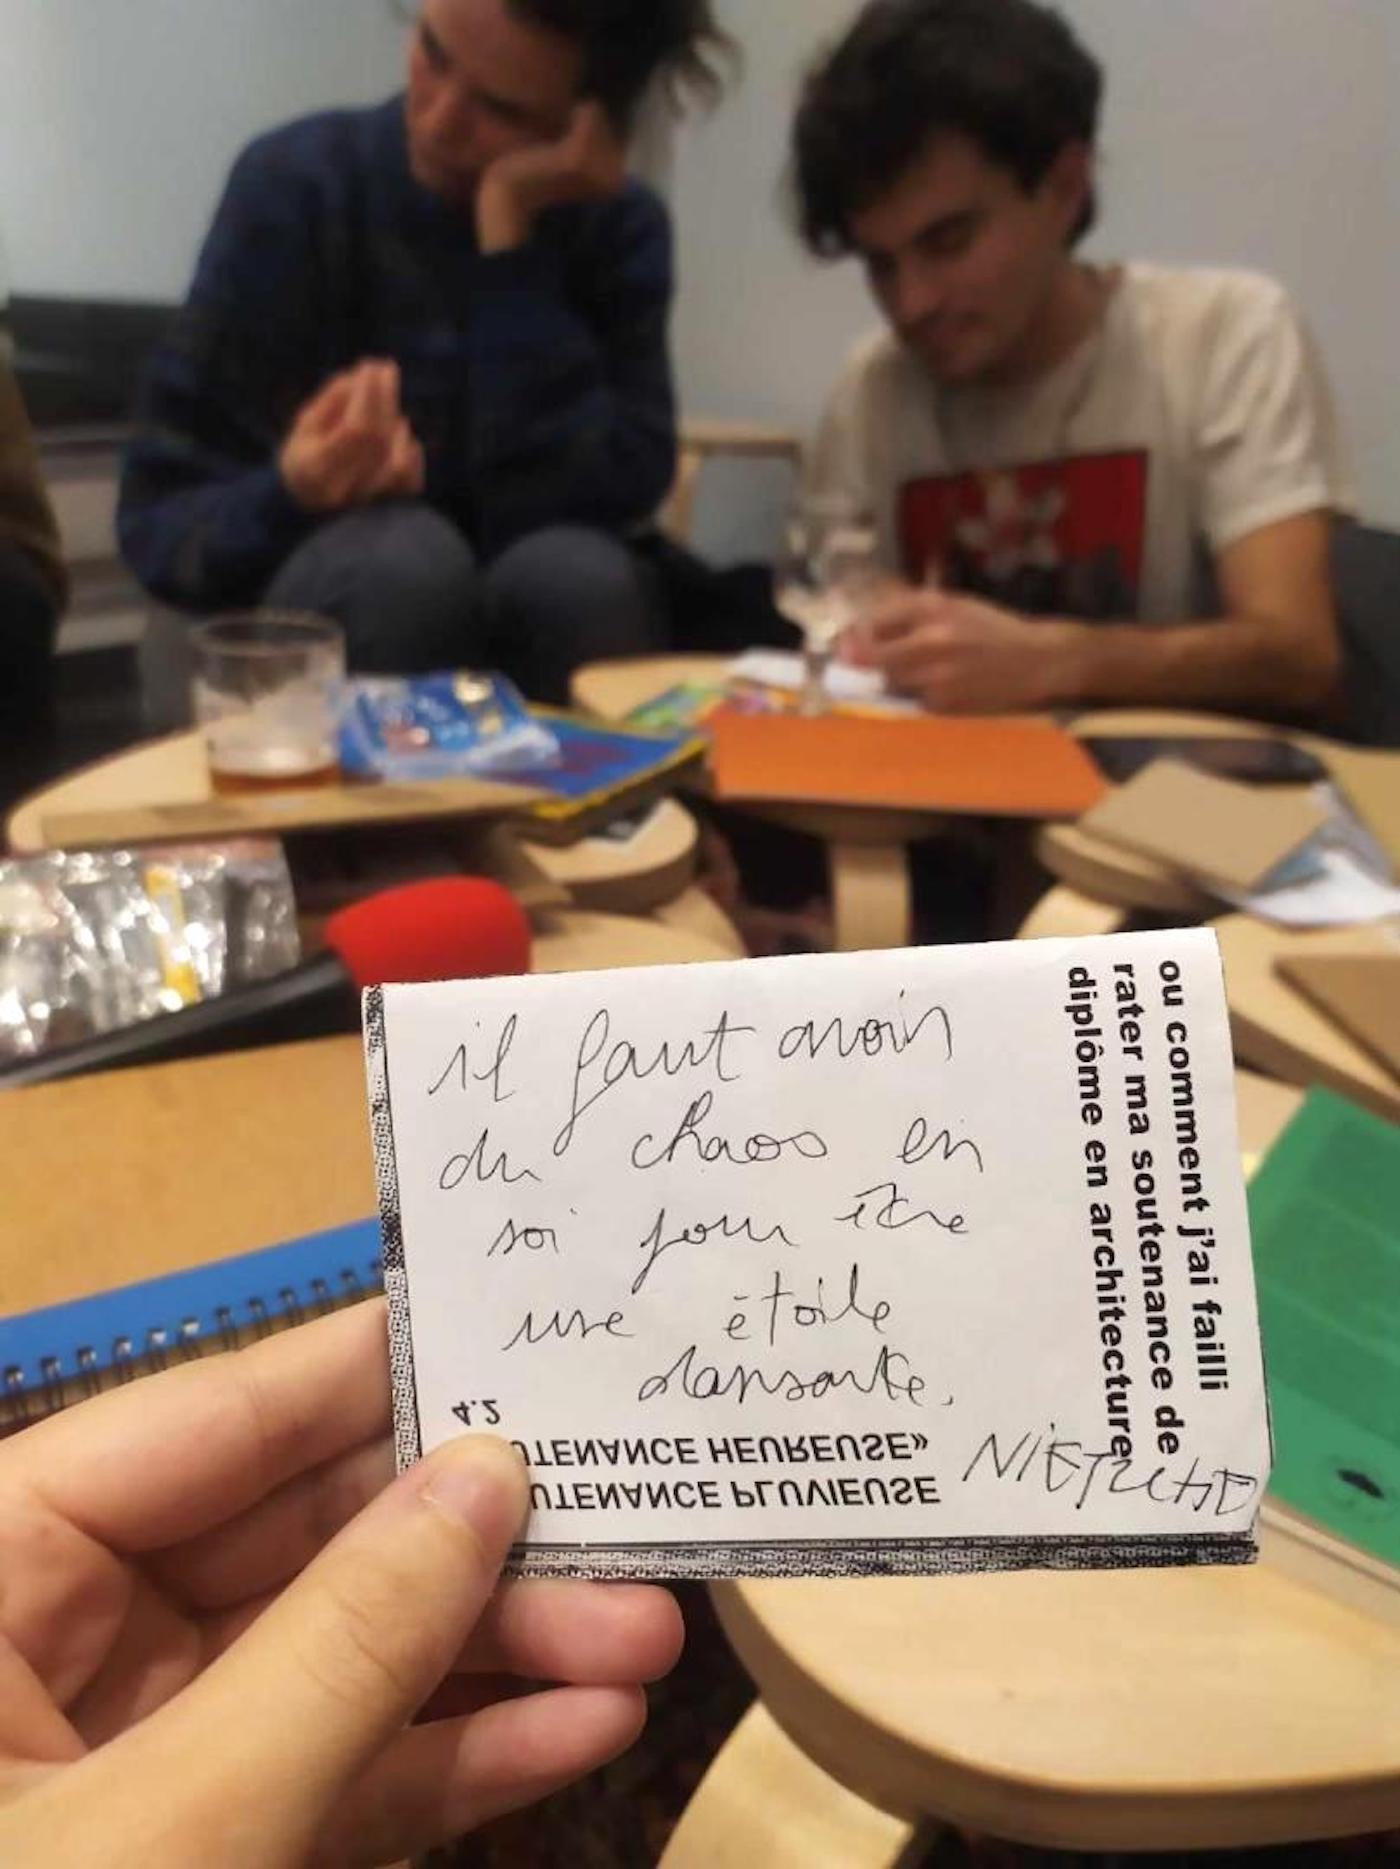 il faut avoir
du chaos en
soi pour être
une étoile
dansante.
NIETZCHE
ou comment j'ai failli
rater ma soutenance de
diplôme en architecture
4.2
UTENANCE HEUREUSE»
UTENANCE PLUVIEUSE